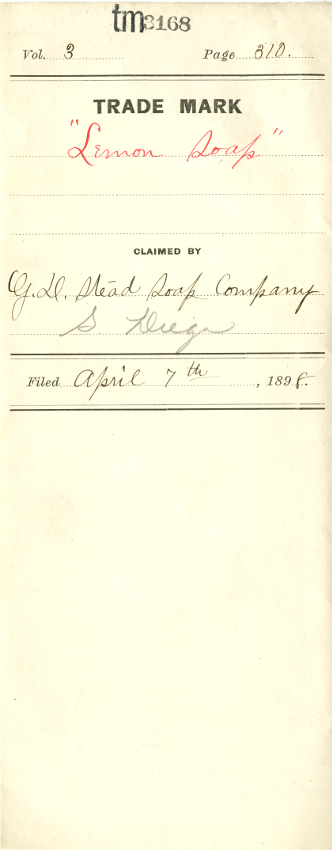 tm 3168
Vol. 3 Page 310.
TRADE MARK
"Lemon Soap"
CLAIMED BY
G. H. Stead Soap Company
S. Diego
Filed April 7th, 1898.